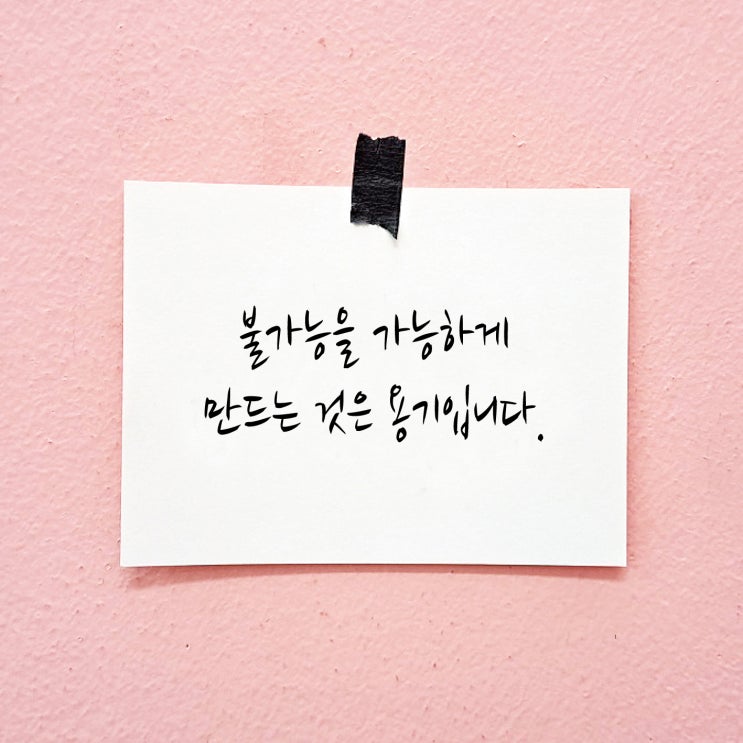 불가능을 가능하게
만드는 것은 용기입니다.